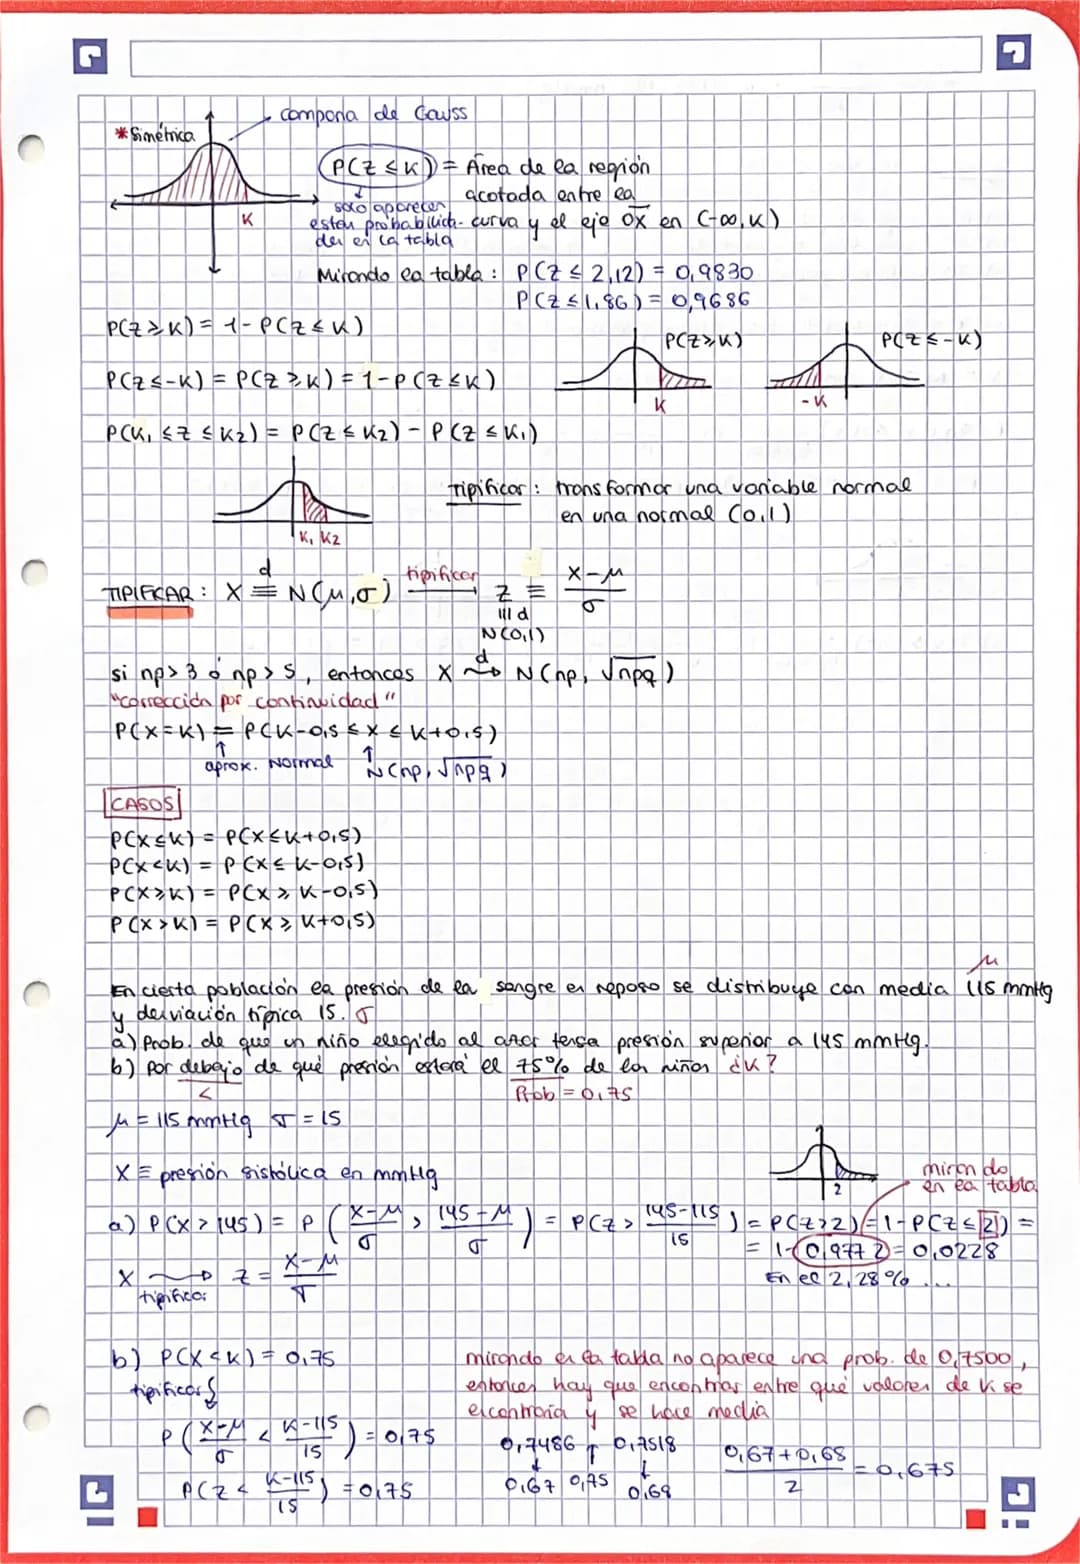 campana de Gauss
*Simétrica
P(Z ≤ K) = Área de la región
acotada entre la
curva y el eje OX en (-∞, K)
solo aparecen
estas probabilida-
des en la tabla
K
Mirando la tabla: P(Z ≤ 2,12) = 0,9830
P(Z ≤ 1,86) = 0,9686
P(Z ≥ K) = 1 - P(Z ≤ K)
P(Z ≥ K)
P(Z ≤ -K)
P(Z ≤ -K) = P(Z ≥ K) = 1 - P(Z ≤ K)
K
-K
P(K₁ ≤ Z ≤ K2) = P(Z ≤ K2) - P(Z ≤ K₁)
Tipificar: transformar una variable normal
en una normal (0,1)
K₁ K2
TIPIFICAR: X ≡ᵈ N(μ,σ) tipificar Z ≡ (X-μ)/σ
≡ d
N(0,1)
si np > 3 ó np > 5, entonces X ~→ᵈ N(np, √npq)
"corrección por continuidad"
P(X=K) = P(K-0,5 ≤ X ≤ K+0,5)
↑ ↑
aprox. Normal N(np, √npq)
CASOS
P(X ≤ K) = P(X ≤ K+0,5)
P(X < K) = P(X ≤ K-0,5)
P(X ≥ K) = P(X ≥ K-0,5)
P(X > K) = P(X ≥ K+0,5)
μ
En cierta población la presión de la sangre en reposo se distribuye con media 115 mmHg
y desviación típica 15. σ
a) Prob. de que un niño elegido al azar tenga presión superior a 145 mmHg.
b) Por debajo de qué presión estará el 75% de los niños ¿K?
<
Prob = 0,75
μ = 115 mmHg σ = 15
X ≡ presión sistólica en mmHg
2
mirando
en la tabla
a) P(X > 145) = P((X-μ)/σ > (145-μ)/σ) = P(Z > (145-115)/15) = P(Z>2) = 1-P(Z ≤ 2) =
= 1-0,9772 = 0,0228
En el 2,28% ...
X → Z = (X-μ)/σ
tipificar
b) P(X<K) = 0,75
tipificar
P((X-μ)/σ < (K-115)/15) = 0,75
P(Z < (K-115)/15) = 0,75
mirando en la tabla no aparece una prob. de 0,7500,
entonces hay que encontrar entre qué valores de K se
encontraría y se hace media
0,7486 ↑ 0,7518
0,67 0,75 0,68
(0,67+0,68)/2 = 0,675